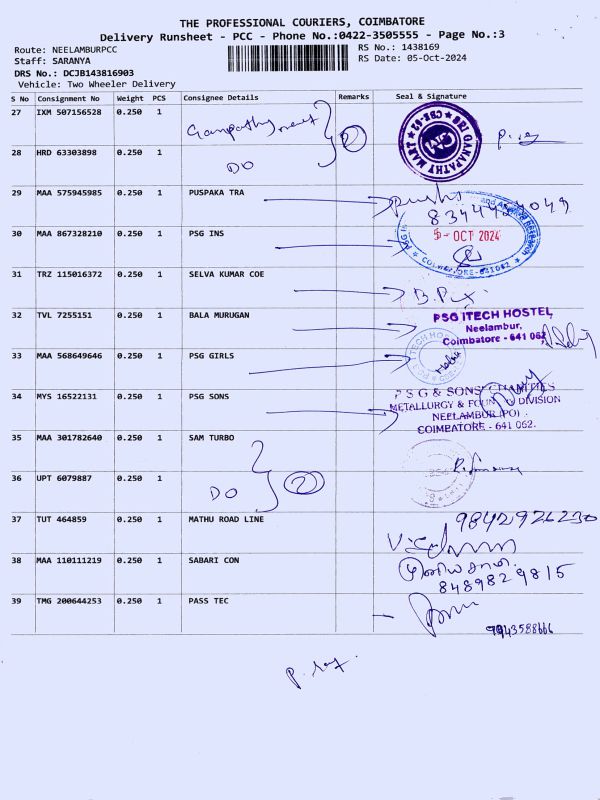 THE PROFESSIONAL COURIERS, COIMBATORE
Delivery Runsheet - PCC - Phone No.:0422-3505555 - Page No.:3
Route: NEELAMBURPCC
RS No.: 1438169
Staff: SARANYA
RS Date: 05-Oct-2024
DRS No.: DCJB143816903
Vehicle: Two Wheeler Delivery
S No Consignment No Weight PCS Consignee Details Remarks Seal & Signature
27 IXM 507156528 0.250 1
SRI GANAPATHY MART
28 HRD 63303898 0.250 1 DO 2
29 MAA 575945985 0.250 1 PUSPAKA TRA
30 MAA 867328210 0.250 1 PSG INS
5 - OCT 2024
COIMBATORE-641062
31 TRZ 115016372 0.250 1 SELVA KUMAR COE
32 TVL 7255151 0.250 1 BALA MURUGAN
PSG ITECH HOSTEL
Neelambur,
Coimbatore - 641 062
33 MAA 568649646 0.250 1 PSG GIRLS
34 MYS 16522131 0.250 1 PSG SONS
P S G & SONS' CHARITIES
METALLURGY & FOUNDRY DIVISION
NEELAMBUR (PO)
COIMBATORE - 641 062.
35 MAA 301782640 0.250 1 SAM TURBO
36 UPT 6079887 0.250 1 DO 2
37 TUT 464859 0.250 1 MATHU ROAD LINE
9842926230
38 MAA 110111219 0.250 1 SABARI CON
8489829815
39 TMG 200644253 0.250 1 PASS TEC
9943588666